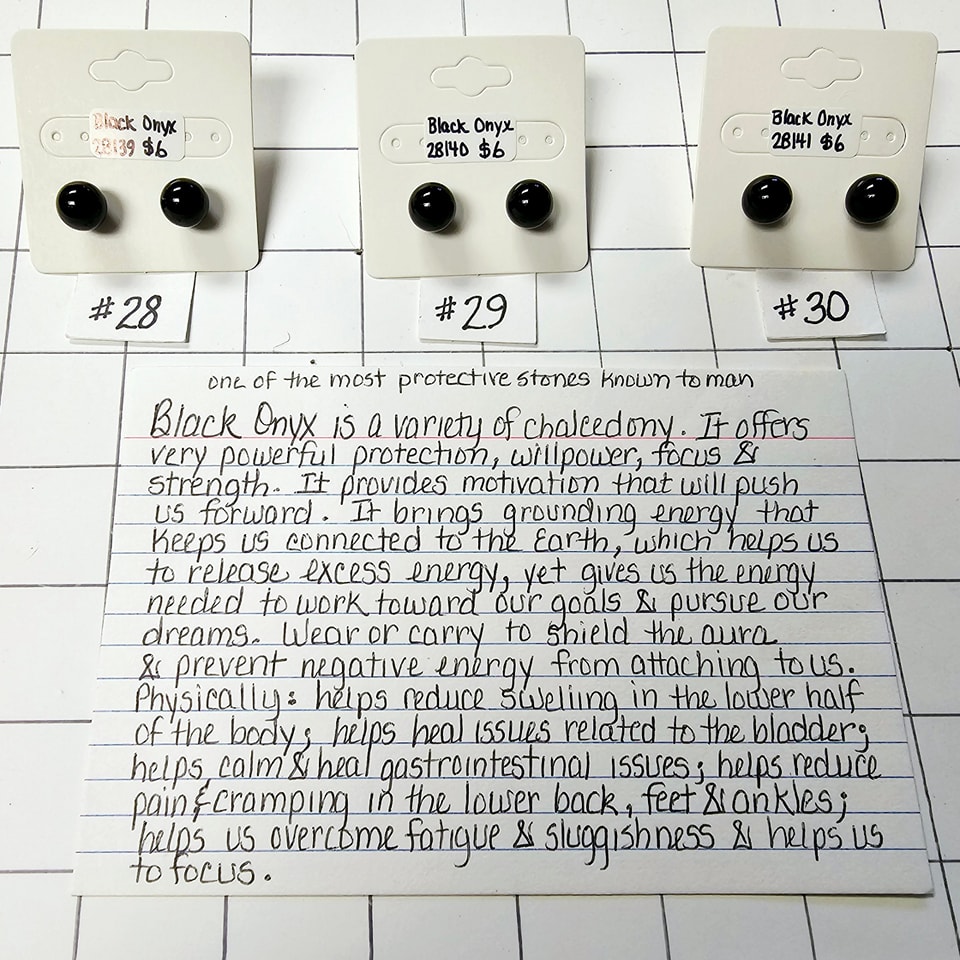 Black Onyx
28139 $6
Black Onyx
28140 $6
Black Onyx
28141 $6
#28
#29
#30
one of the most protective stones known to man
Black Onyx is a variety of chalcedony. It offers
very powerful protection, willpower, focus &
strength. It provides motivation that will push
us forward. It brings grounding energy that
keeps us connected to the Earth, which helps us
to release excess energy, yet gives us the energy
needed to work toward our goals & pursue our
dreams. Wear or carry to shield the aura
& prevent negative energy from attaching to us.
Physically: helps reduce swelling in the lower half
of the body; helps heal issues related to the bladder;
helps calm & heal gastrointestinal issues; helps reduce
pain & cramping in the lower back, feet & ankles;
helps us overcome fatigue & sluggishness & helps us
to focus.